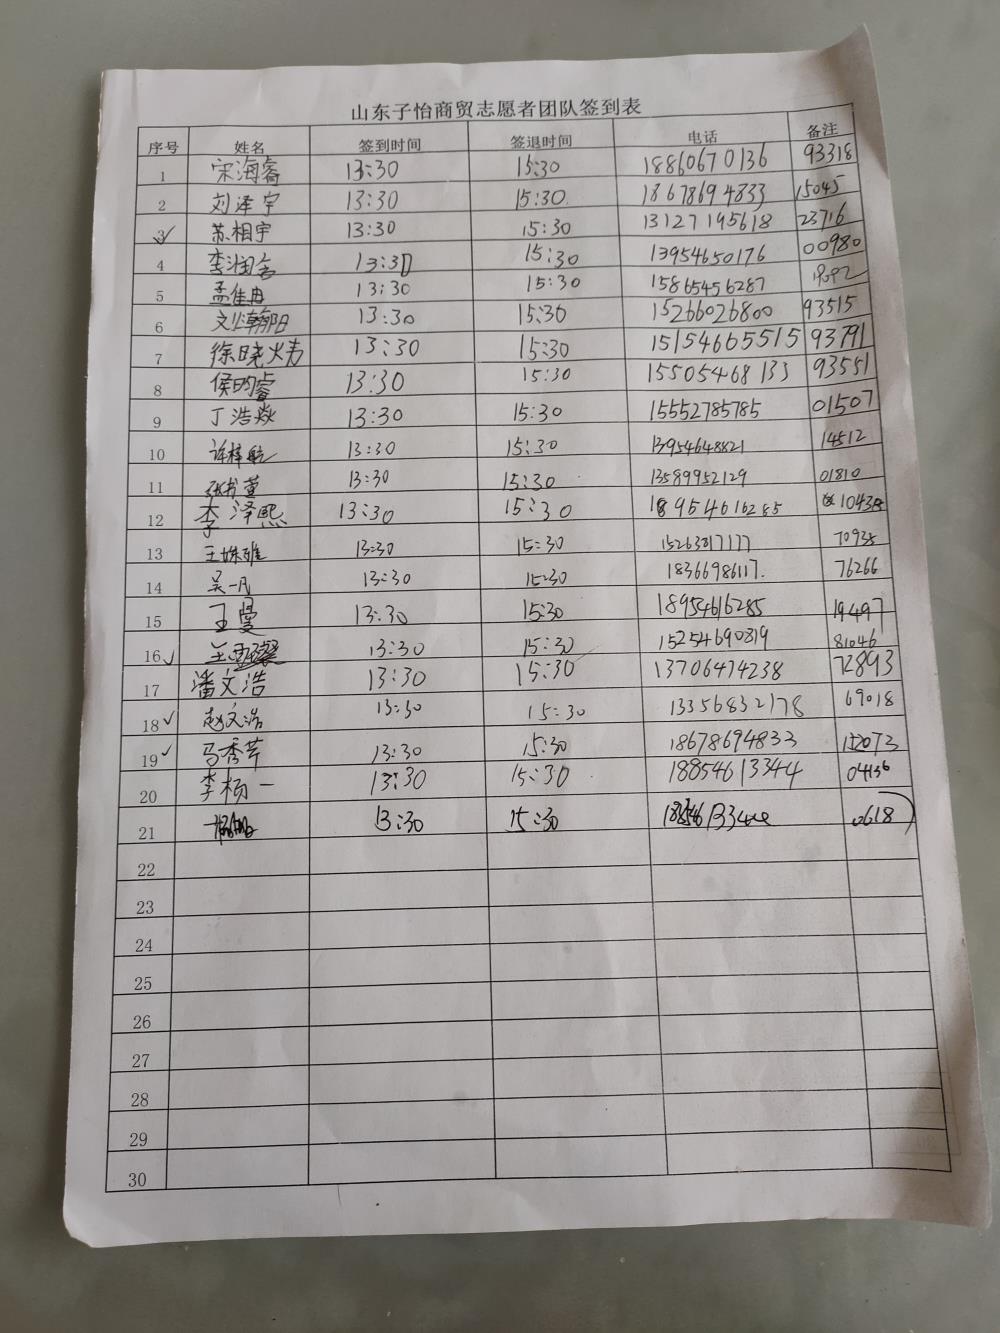 山东子怡商贸志愿者团队签到表
序号 姓名 签到时间 签退时间 电话 备注
1 宋海睿 13:30 15:30 18860670136 93318
2 刘泽宇 13:30 15:30 18678694833 15045
3 苏相宇 13:30 15:30 13127195618 23716
4 李润 13:30 15:30 13954650176 00980
5 孟佳冉 13:30 15:30 15865456287
6 翰阳 13:30 15:30 15266026800 93515
7 徐晓炜 13:30 15:30 15154665515 93791
8 侯昀睿 13:30 15:30 15505468133 93551
9 丁浩焱 13:30 15:30 15552785785 01507
10 许梓航 13:30 15:30 13954648821 14512
11 张书萱 13:30 15:30 13589952129 01810
12 李泽熙 13:30 15:30 18954616285 10438
13 王姝雅 13:30 15:30 15263817177 70935
14 吴一凡 13:30 15:30 18366986117. 76266
15 王曼 13:30 15:30 18954616285 19497
16 13:30 15:30 15254690819 81046
17 潘文浩 13:30 15:30 13706474238 72893
18 赵文浩 13:30 15:30 13356832178 69018
19 马秀芹 13:30 15:30 18678694833 12073
20 李杨一 13:30 15:30 18854613344 04136
21 13:30 15:30 0618
22
23
24
25
26
27
28
29
30